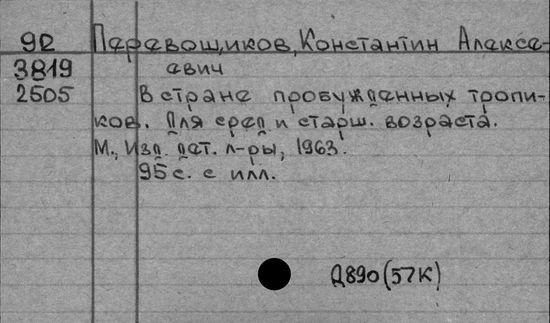 92 Перевощиков, Константин Алексе-
3819 евич
2505 В стране пробужденных тропи-
ков. Для сред. и старш. возраста.
М., Изд. дет. л-ры, 1963.
95 с. с илл.
Д890(57К)